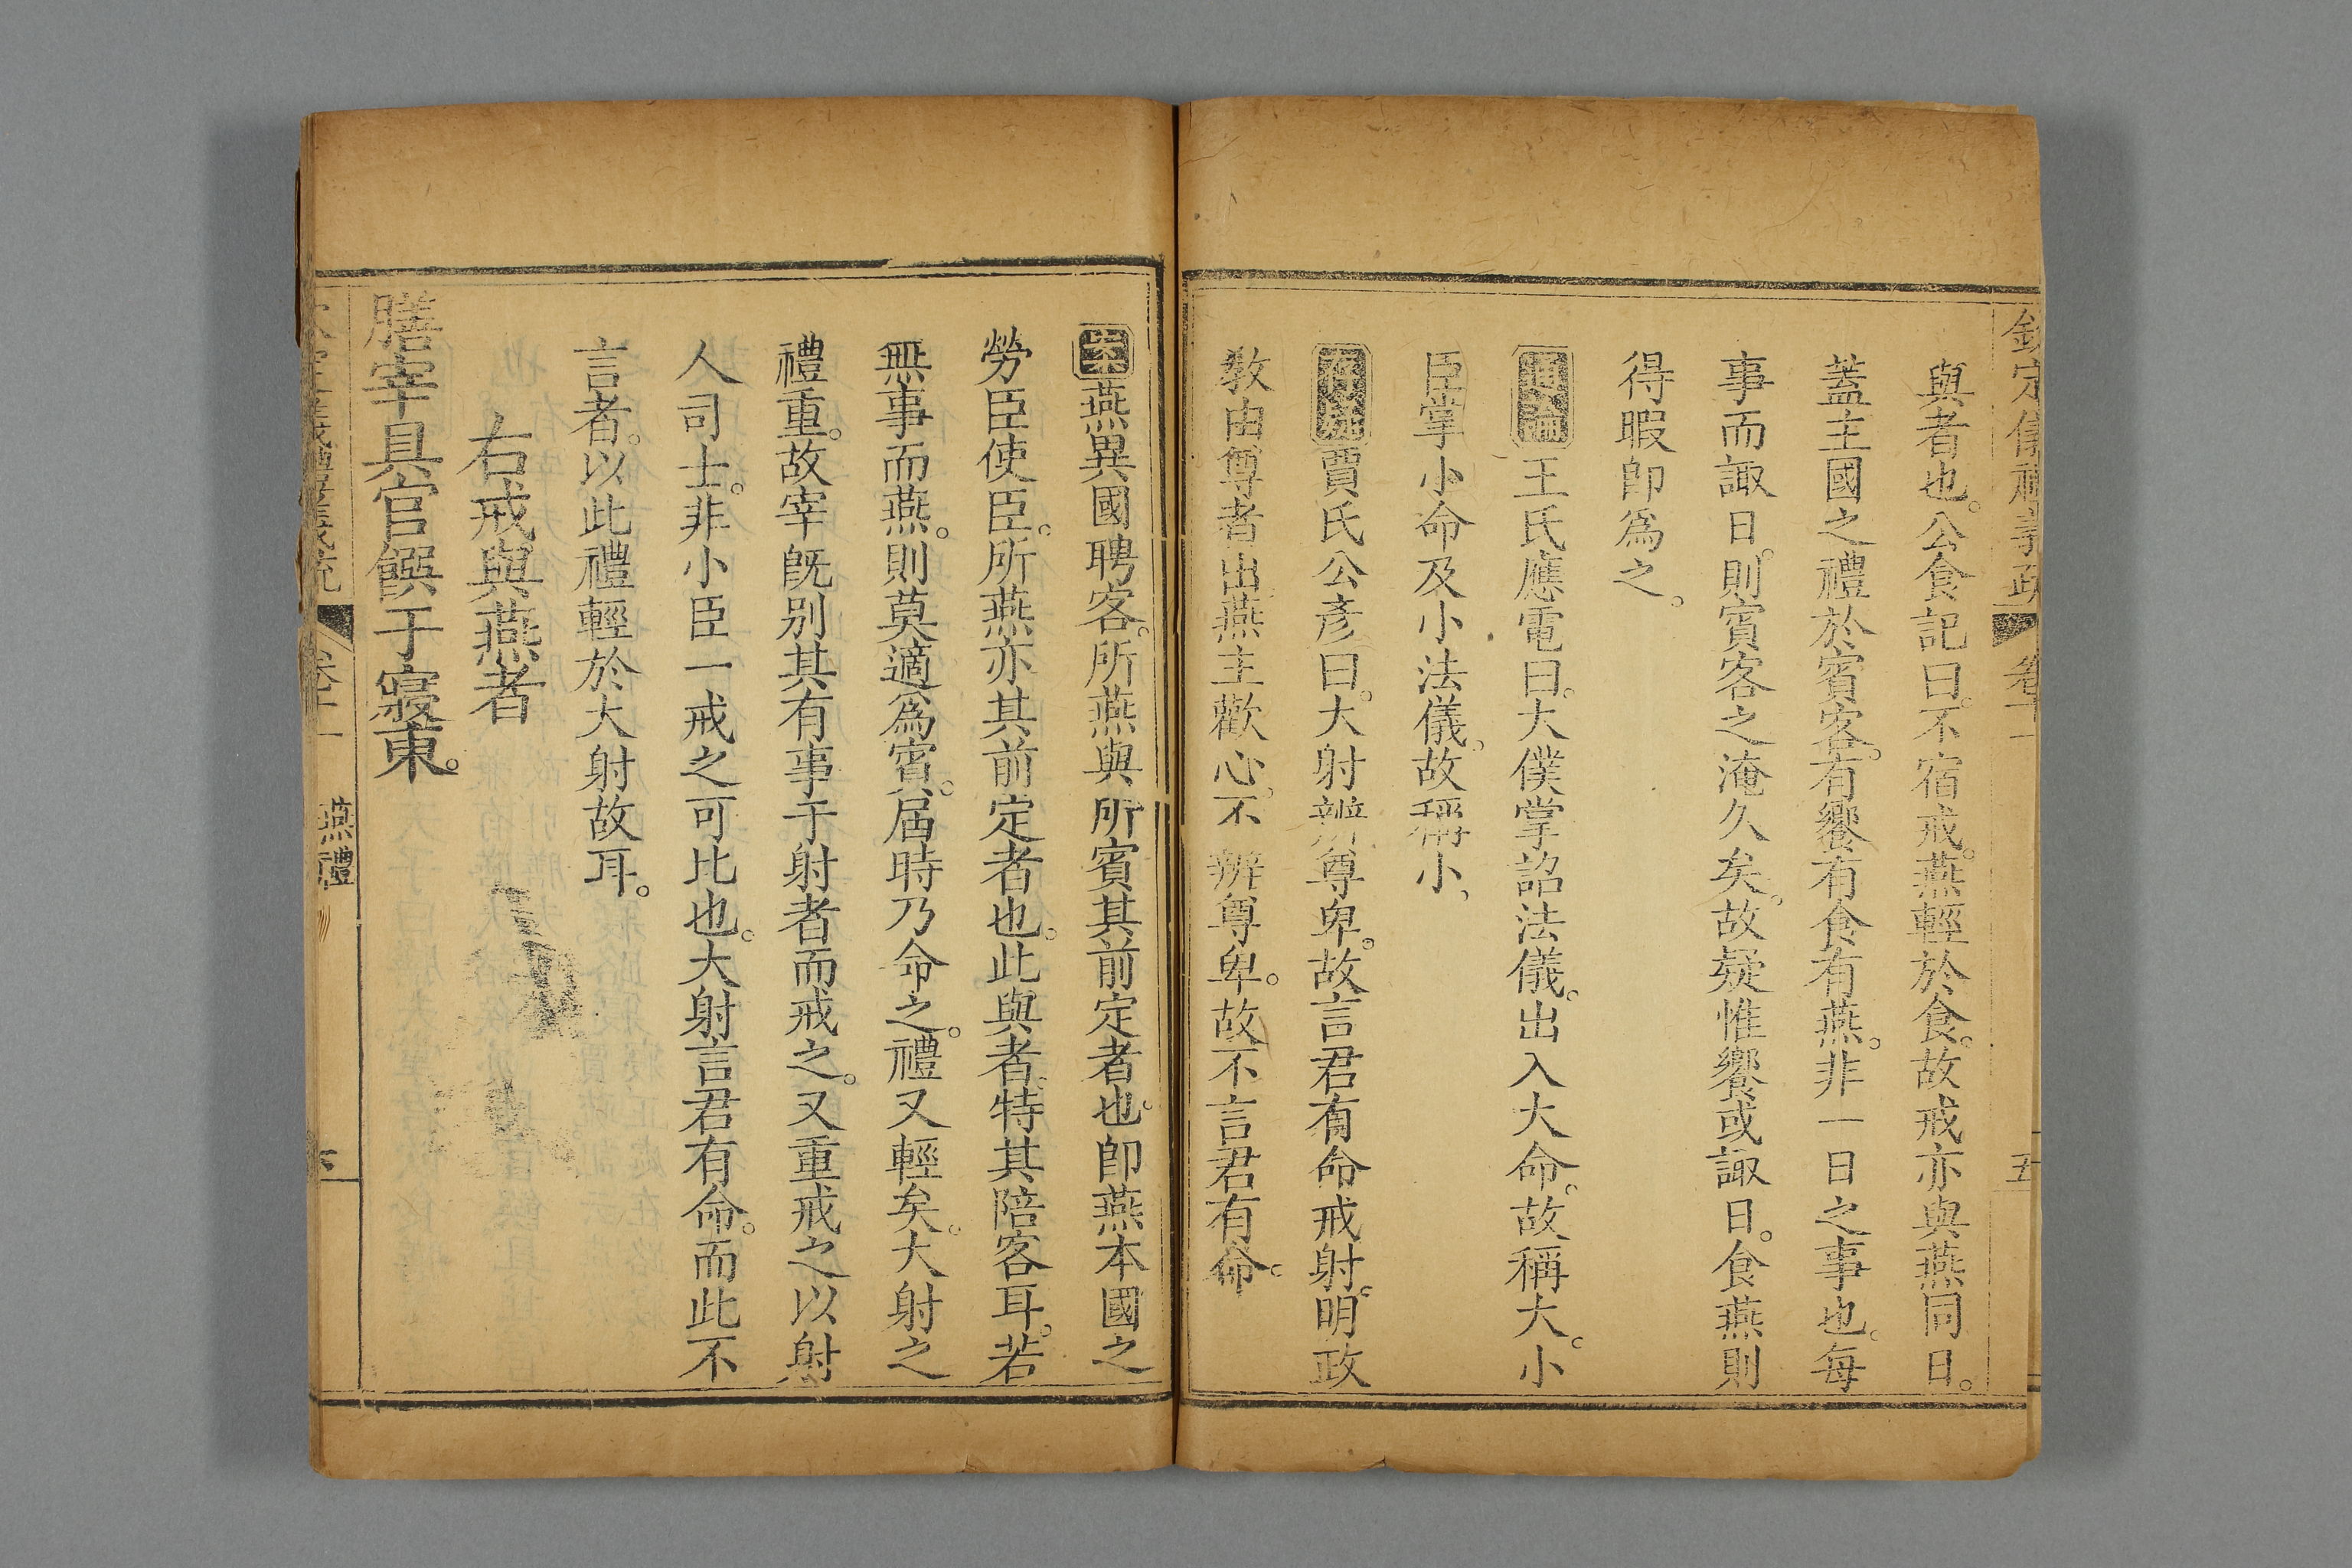 欽定儀禮義疏 卷十一 五
與者也。公食記曰。不宿戒。燕輕於食。故戒亦與燕同日。
蓋主國之禮於賓客。有饗有食有燕。非一日之事也。每
事而諏日。則賓客之淹久矣。故疑惟饗或諏日。食燕則
得暇卽爲之。
通論王氏應電曰。大僕掌詔法儀。出入大命。故稱大。小
臣掌小命及小法儀。故稱小。
存疑賈氏公彥曰。大射辨尊卑。故言君有命戒射。明政
敎由尊者出。燕主歡心。不辨尊卑。故不言君有命。
案燕異國聘客。所燕與所賓其前定者也。卽燕本國之
勞臣使臣。所燕亦其前定者也。此與者。特其陪客耳。若
無事而燕。則莫適爲賓。屆時乃命之。禮又輕矣。大射之
禮重。故宰旣别其有事于射者而戒之。又重戒之以射
人司士。非小臣一戒之可比也。大射言君有命。而此不
言者。以此禮輕於大射故耳。
右戒與燕者
膳宰具官饌于寢東。
卷十一 燕禮